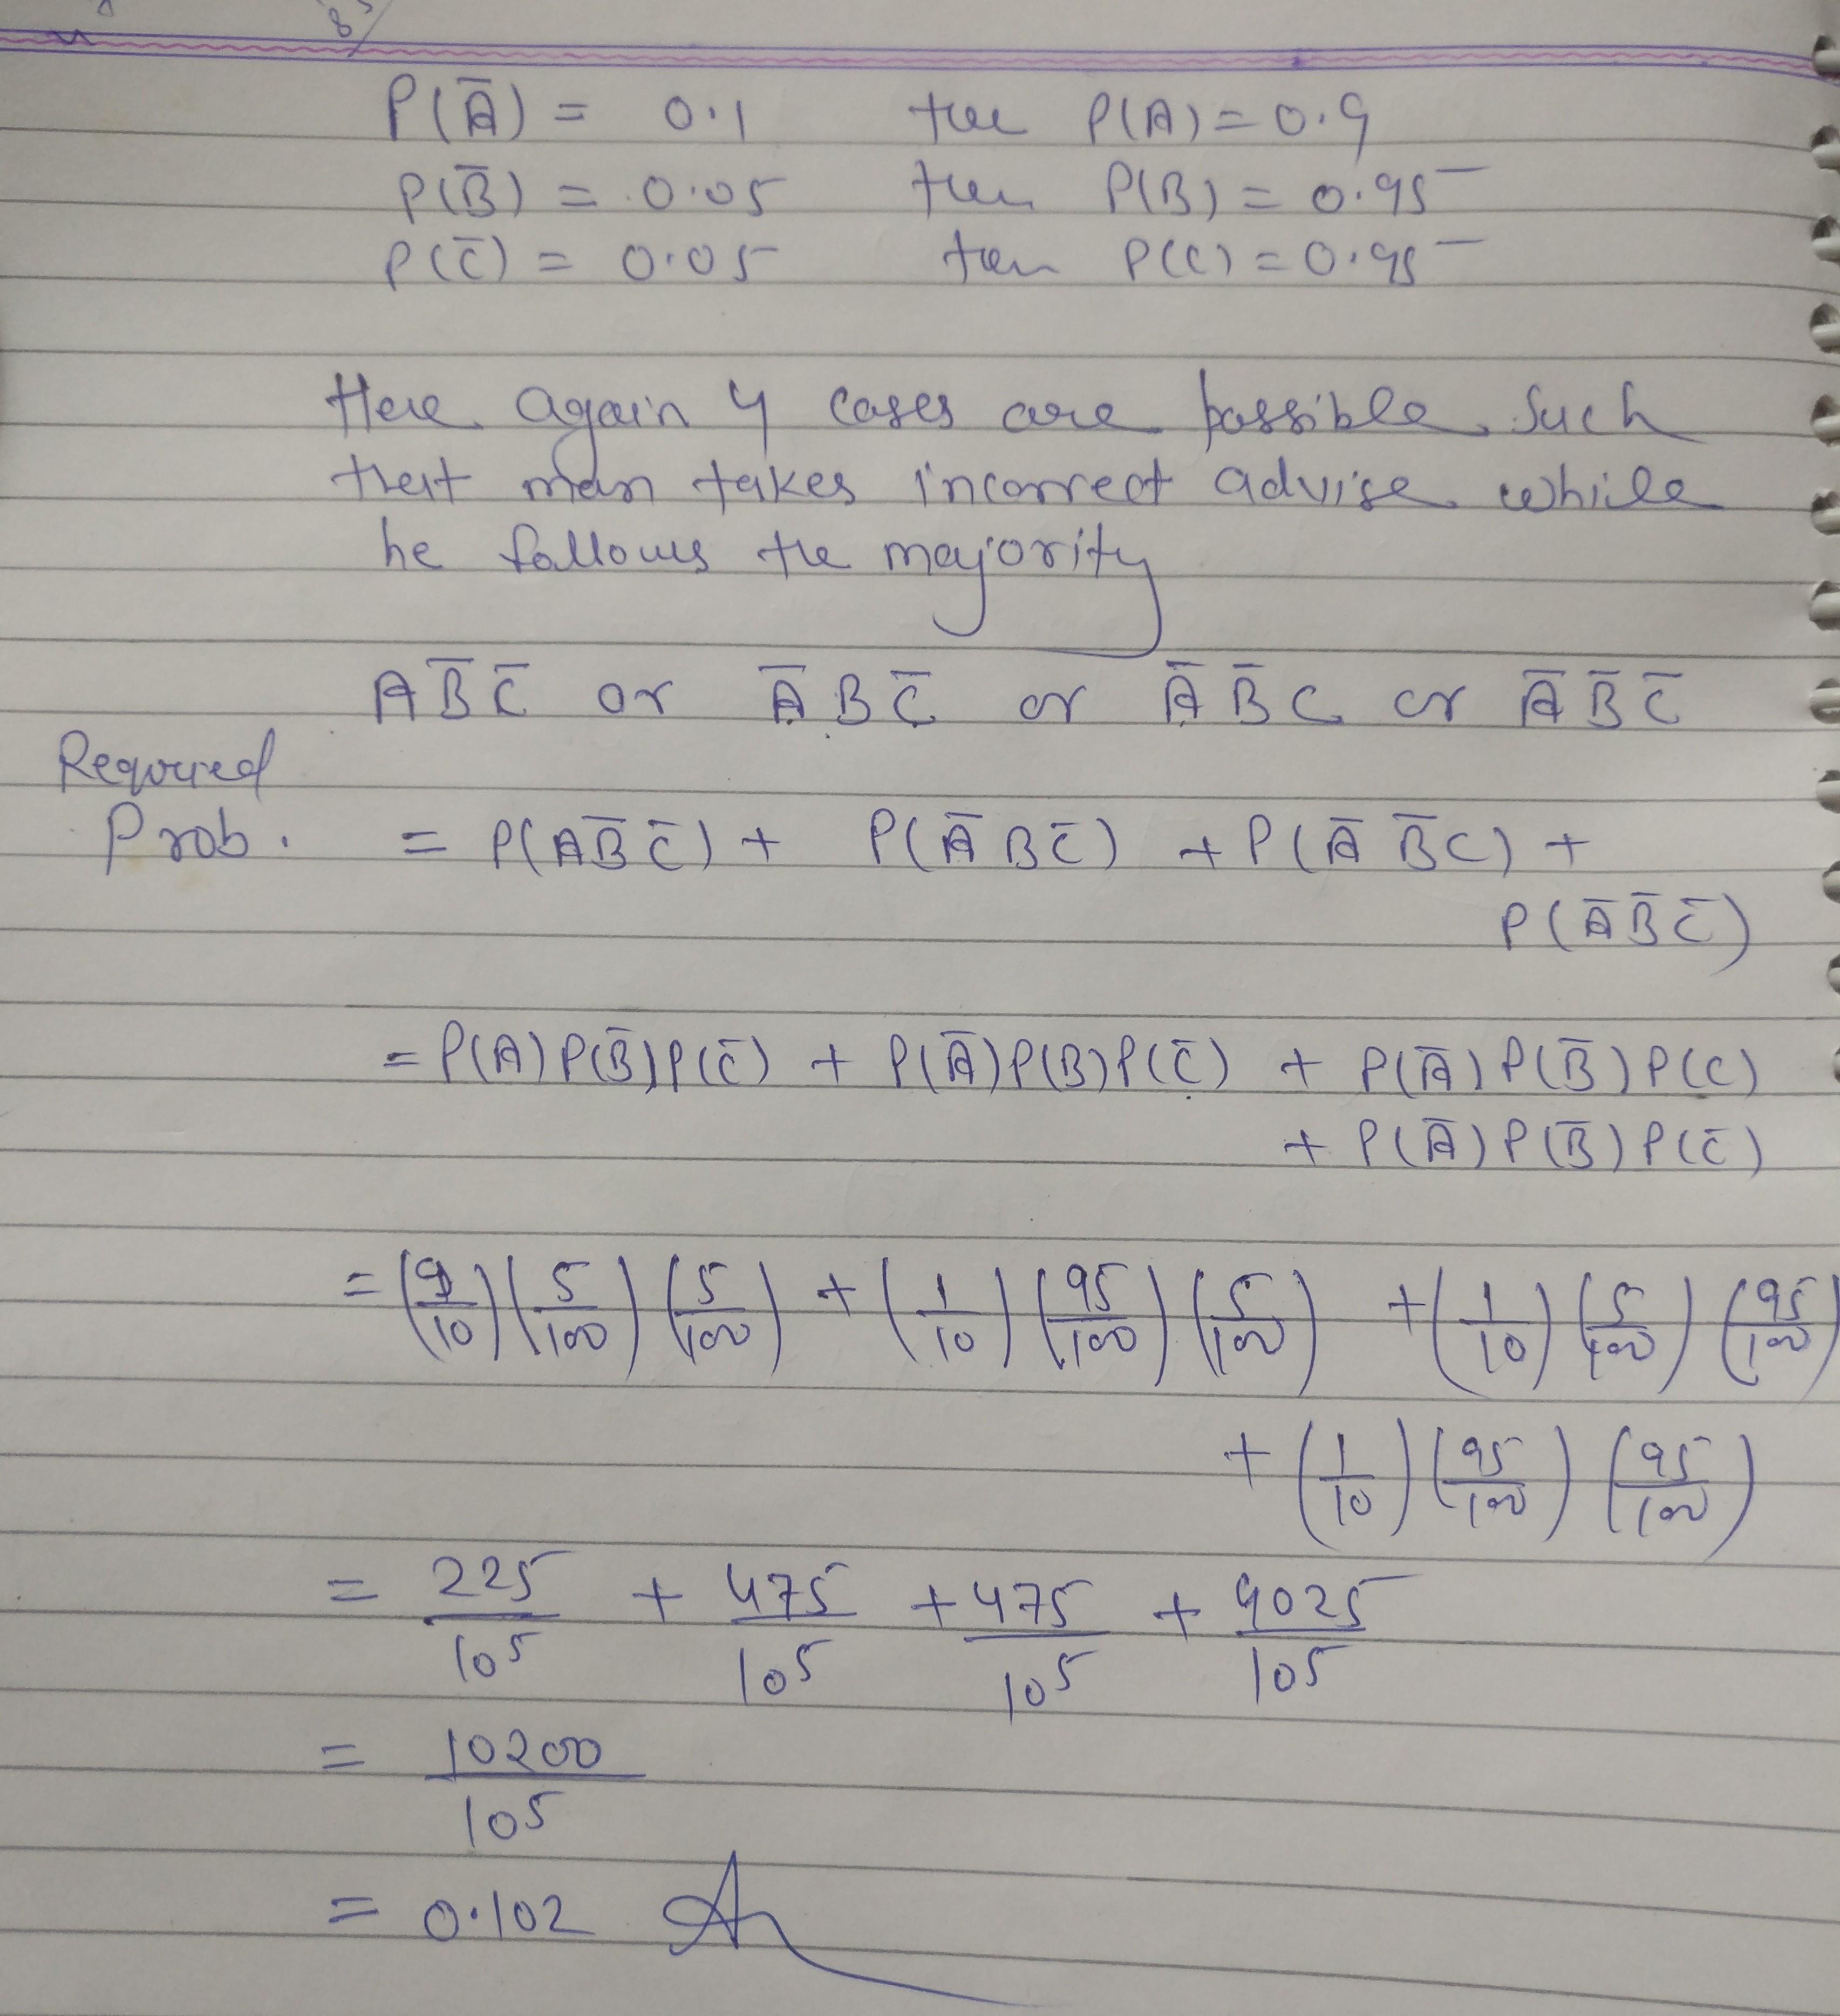 8
P(Ā) = 0.1 then P(A) = 0.9
P(B̄) = 0.05 then P(B) = 0.95
P(C̄) = 0.05 then P(C) = 0.95
Here again 4 cases are possible such
that man takes incorrect advise while
he follows the majority
AB̄C̄ or ĀBC̄ or ĀB̄C or ĀB̄C̄
Required
Prob. = P(AB̄C̄) + P(ĀBC̄) + P(ĀB̄C) +
P(ĀB̄C̄)
= P(A)P(B̄)P(C̄) + P(Ā)P(B)P(C̄) + P(Ā)P(B̄)P(C)
+ P(Ā)P(B̄)P(C̄)
= (9/10)(5/100)(5/100) + (1/10)(95/100)(5/100) + (1/10)(5/100)(95/100)
+ (1/10)(95/100)(95/100)
= 225/10⁵ + 475/10⁵ + 475/10⁵ + 9025/10⁵
= 10200/10⁵
= 0.102 A